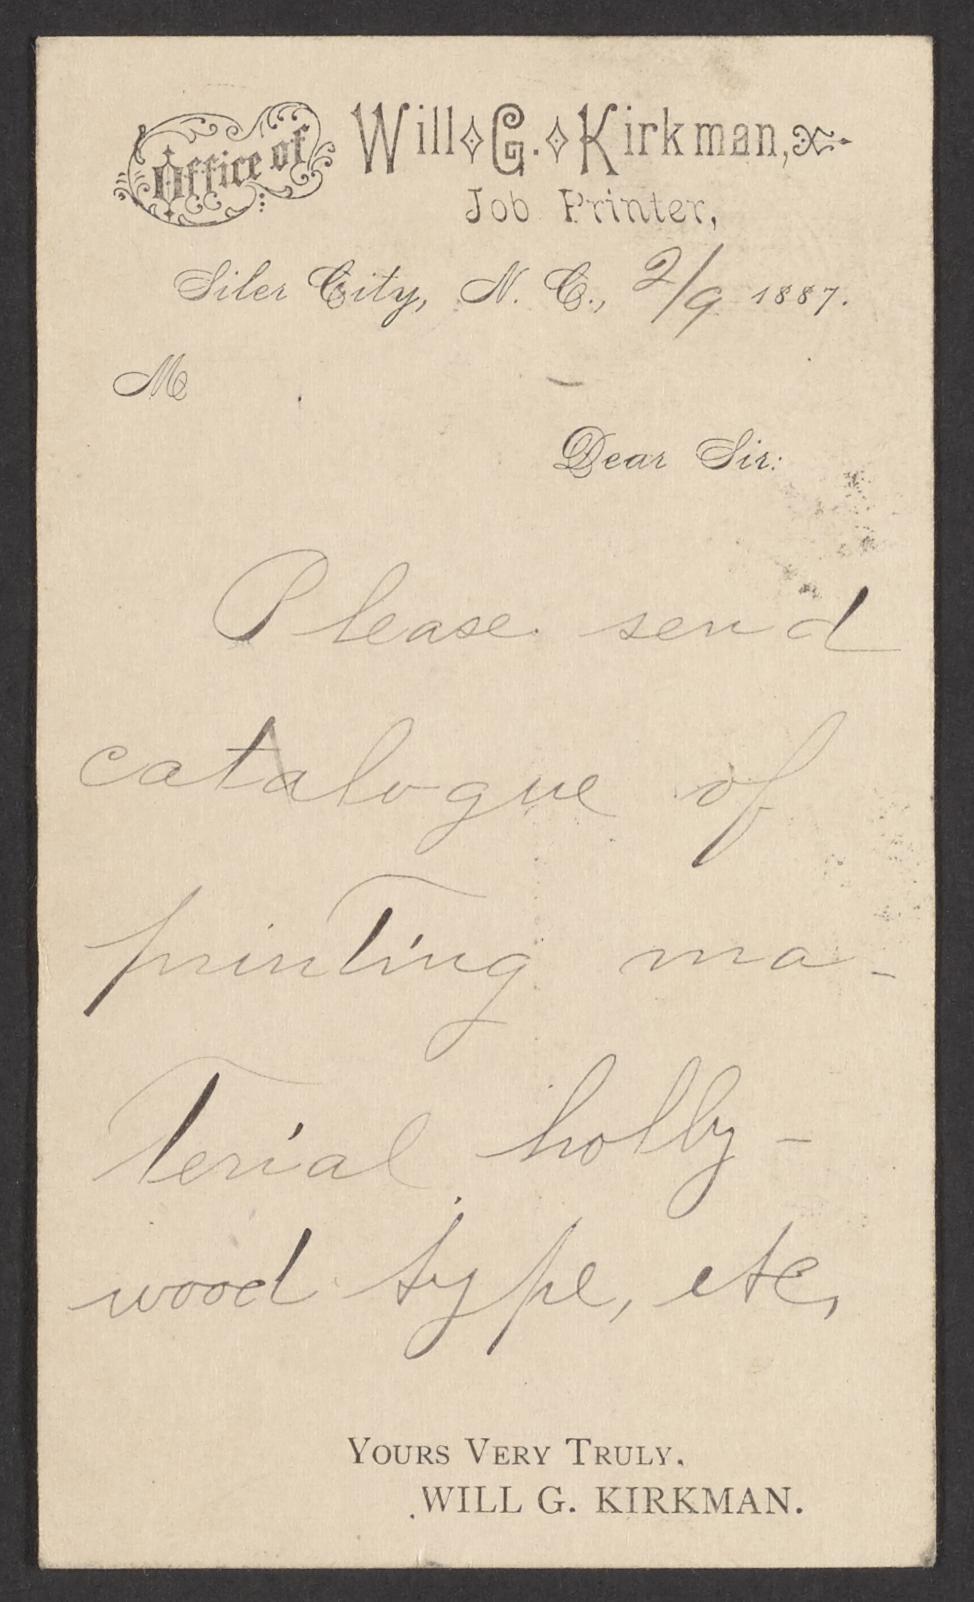 Office of Will G. Kirkman,
Job Printer,
Siler City, N. C., 2/9 1887.
M
Dear Sir:
Please send
catalogue of
printing ma-
terial holly-
wood type, etc,
Yours Very Truly,
WILL G. KIRKMAN.